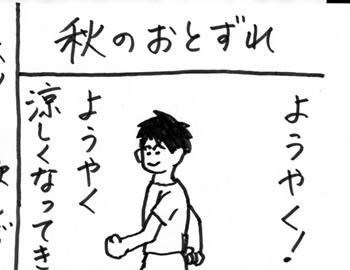 秋のおとずれ
ようやく!
ようやく
涼しくなってき